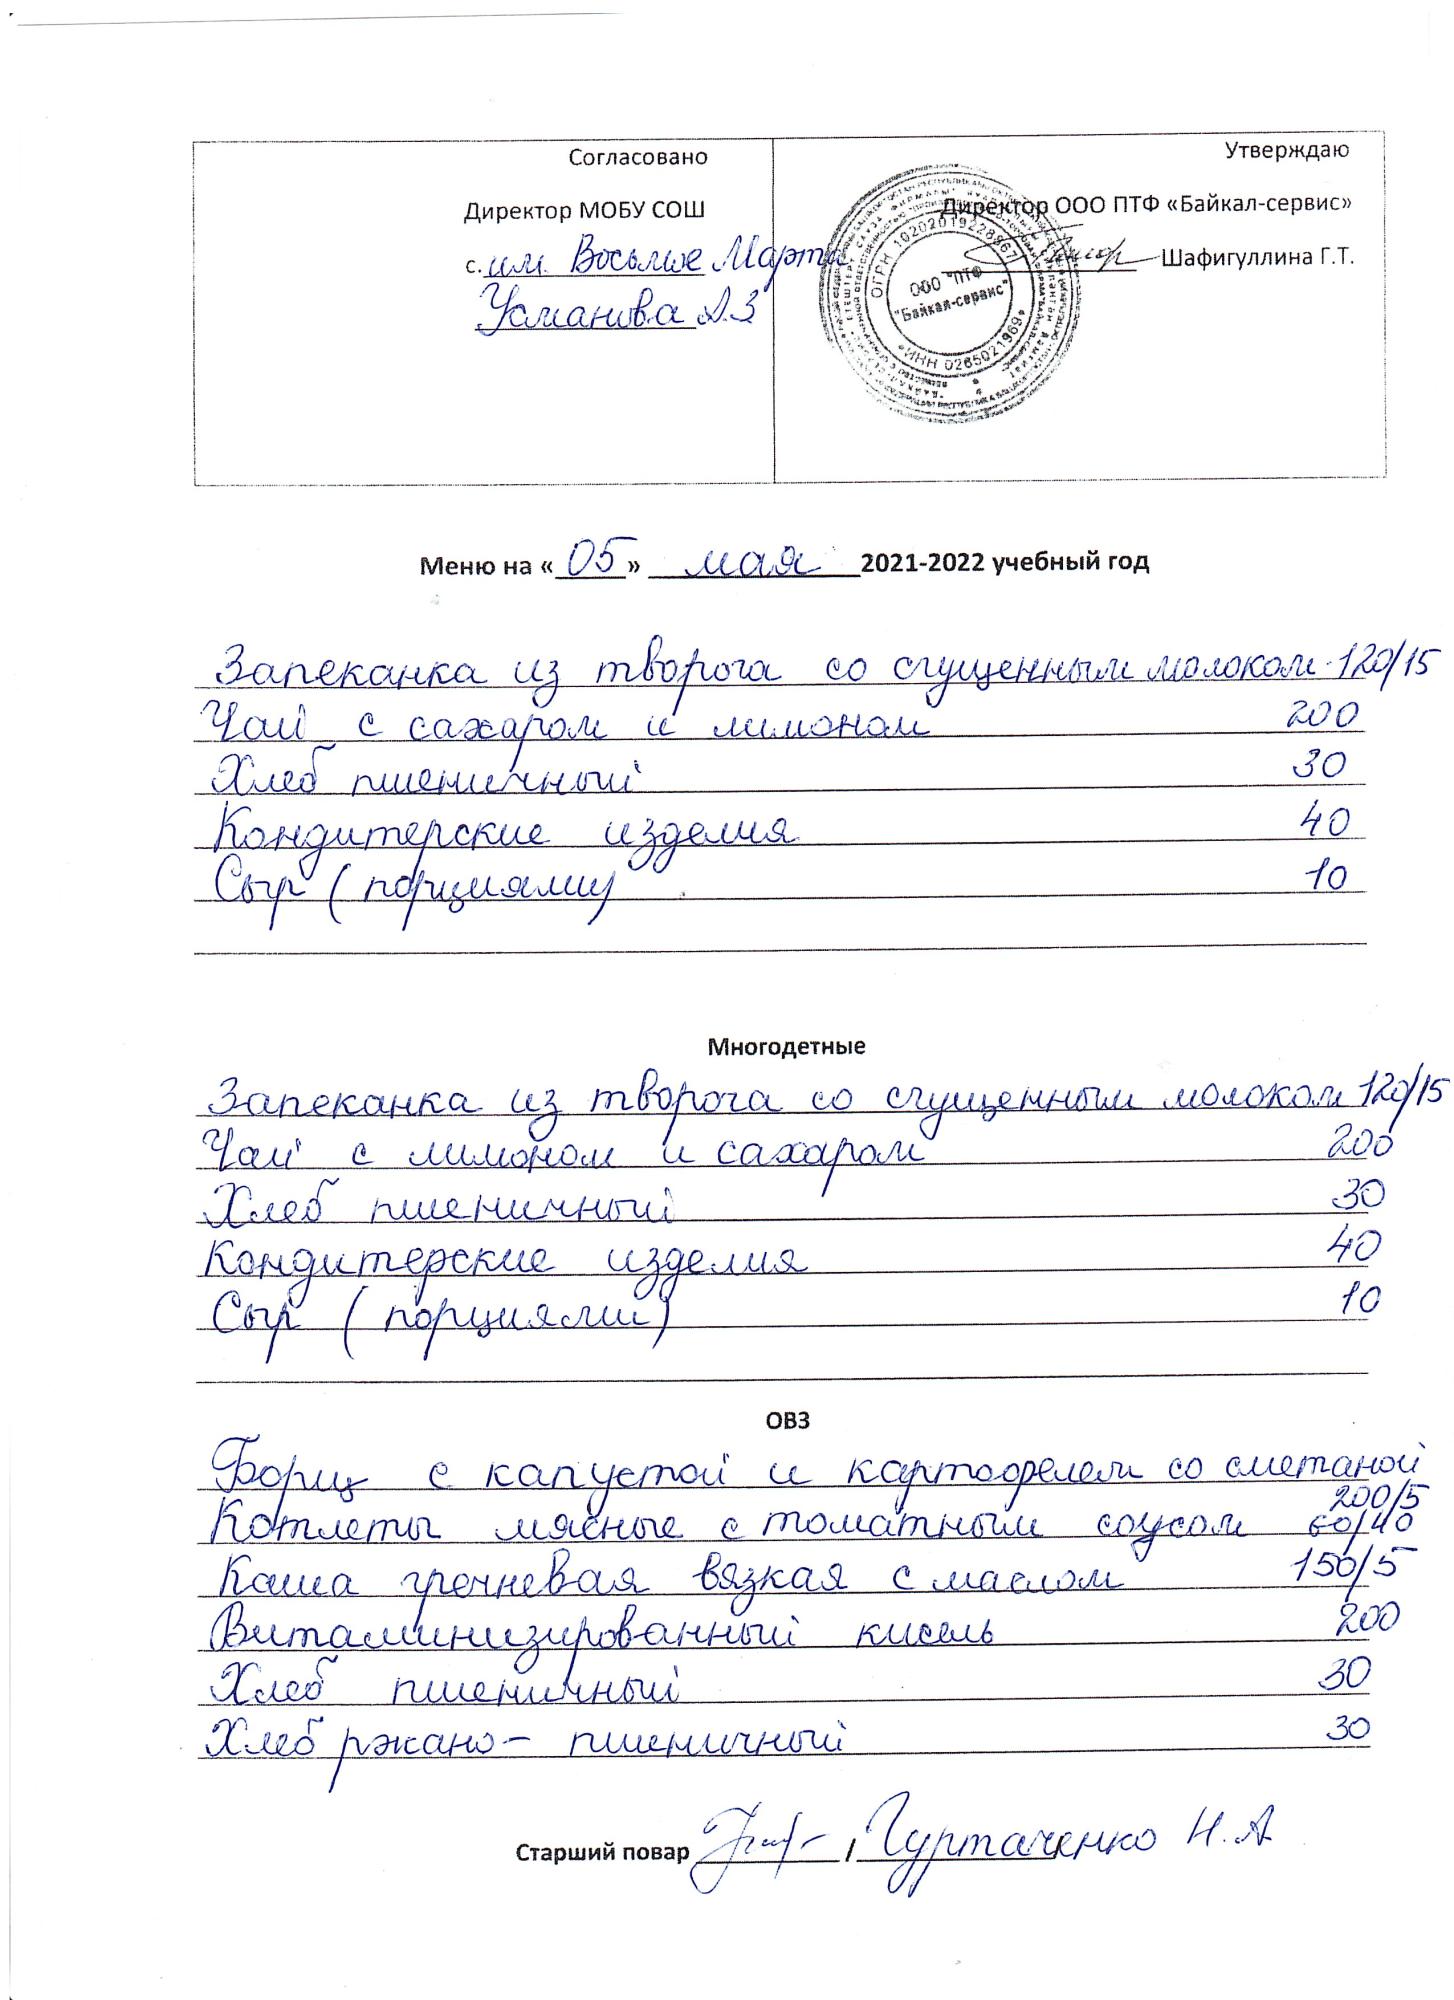 Согласовано
Директор МОБУ СОШ
с. им. Восьмое Марта
Усманова А.З
Утверждаю
Директор ООО ПТФ «Байкал-сервис»
Шафигуллина Г.Т.
ОГРН 1020201922896
ООО "ПТФ
"Байкал-сервис"
ИНН 0265021969
Меню на « 05 » мая 2021-2022 учебный год
Запеканка из творога со сгущенным молоком 120/15
Чай с сахаром и лимоном 200
Хлеб пшеничный 30
Кондитерские изделия 40
Сыр (порциями) 10
Многодетные
Запеканка из творога со сгущенным молоком 120/15
Чай с лимоном и сахаром 200
Хлеб пшеничный 30
Кондитерские изделия 40
Сыр (порциями) 10
ОВЗ
Борщ с капустой и картофелем со сметаной
200/5
Котлеты мясные с томатным соусом 60/40
Каша гречневая вязкая с маслом 150/5
Витаминизированный кисель 200
Хлеб пшеничный 30
Хлеб ржано- пшеничный 30
Старший повар / Гуртаченко Н.А